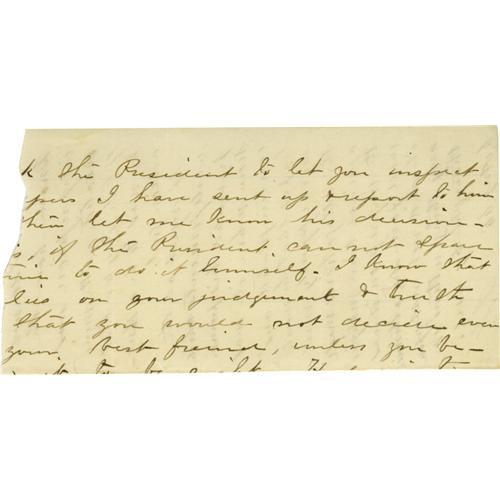 k the President to let you inspect
pers I have sent up & report to him
then let me know his decision-
is, if the President can not spare
time to do it himself. I know that
lies on your judgement & truth
that you would not decide even
your best freind, unless you be-